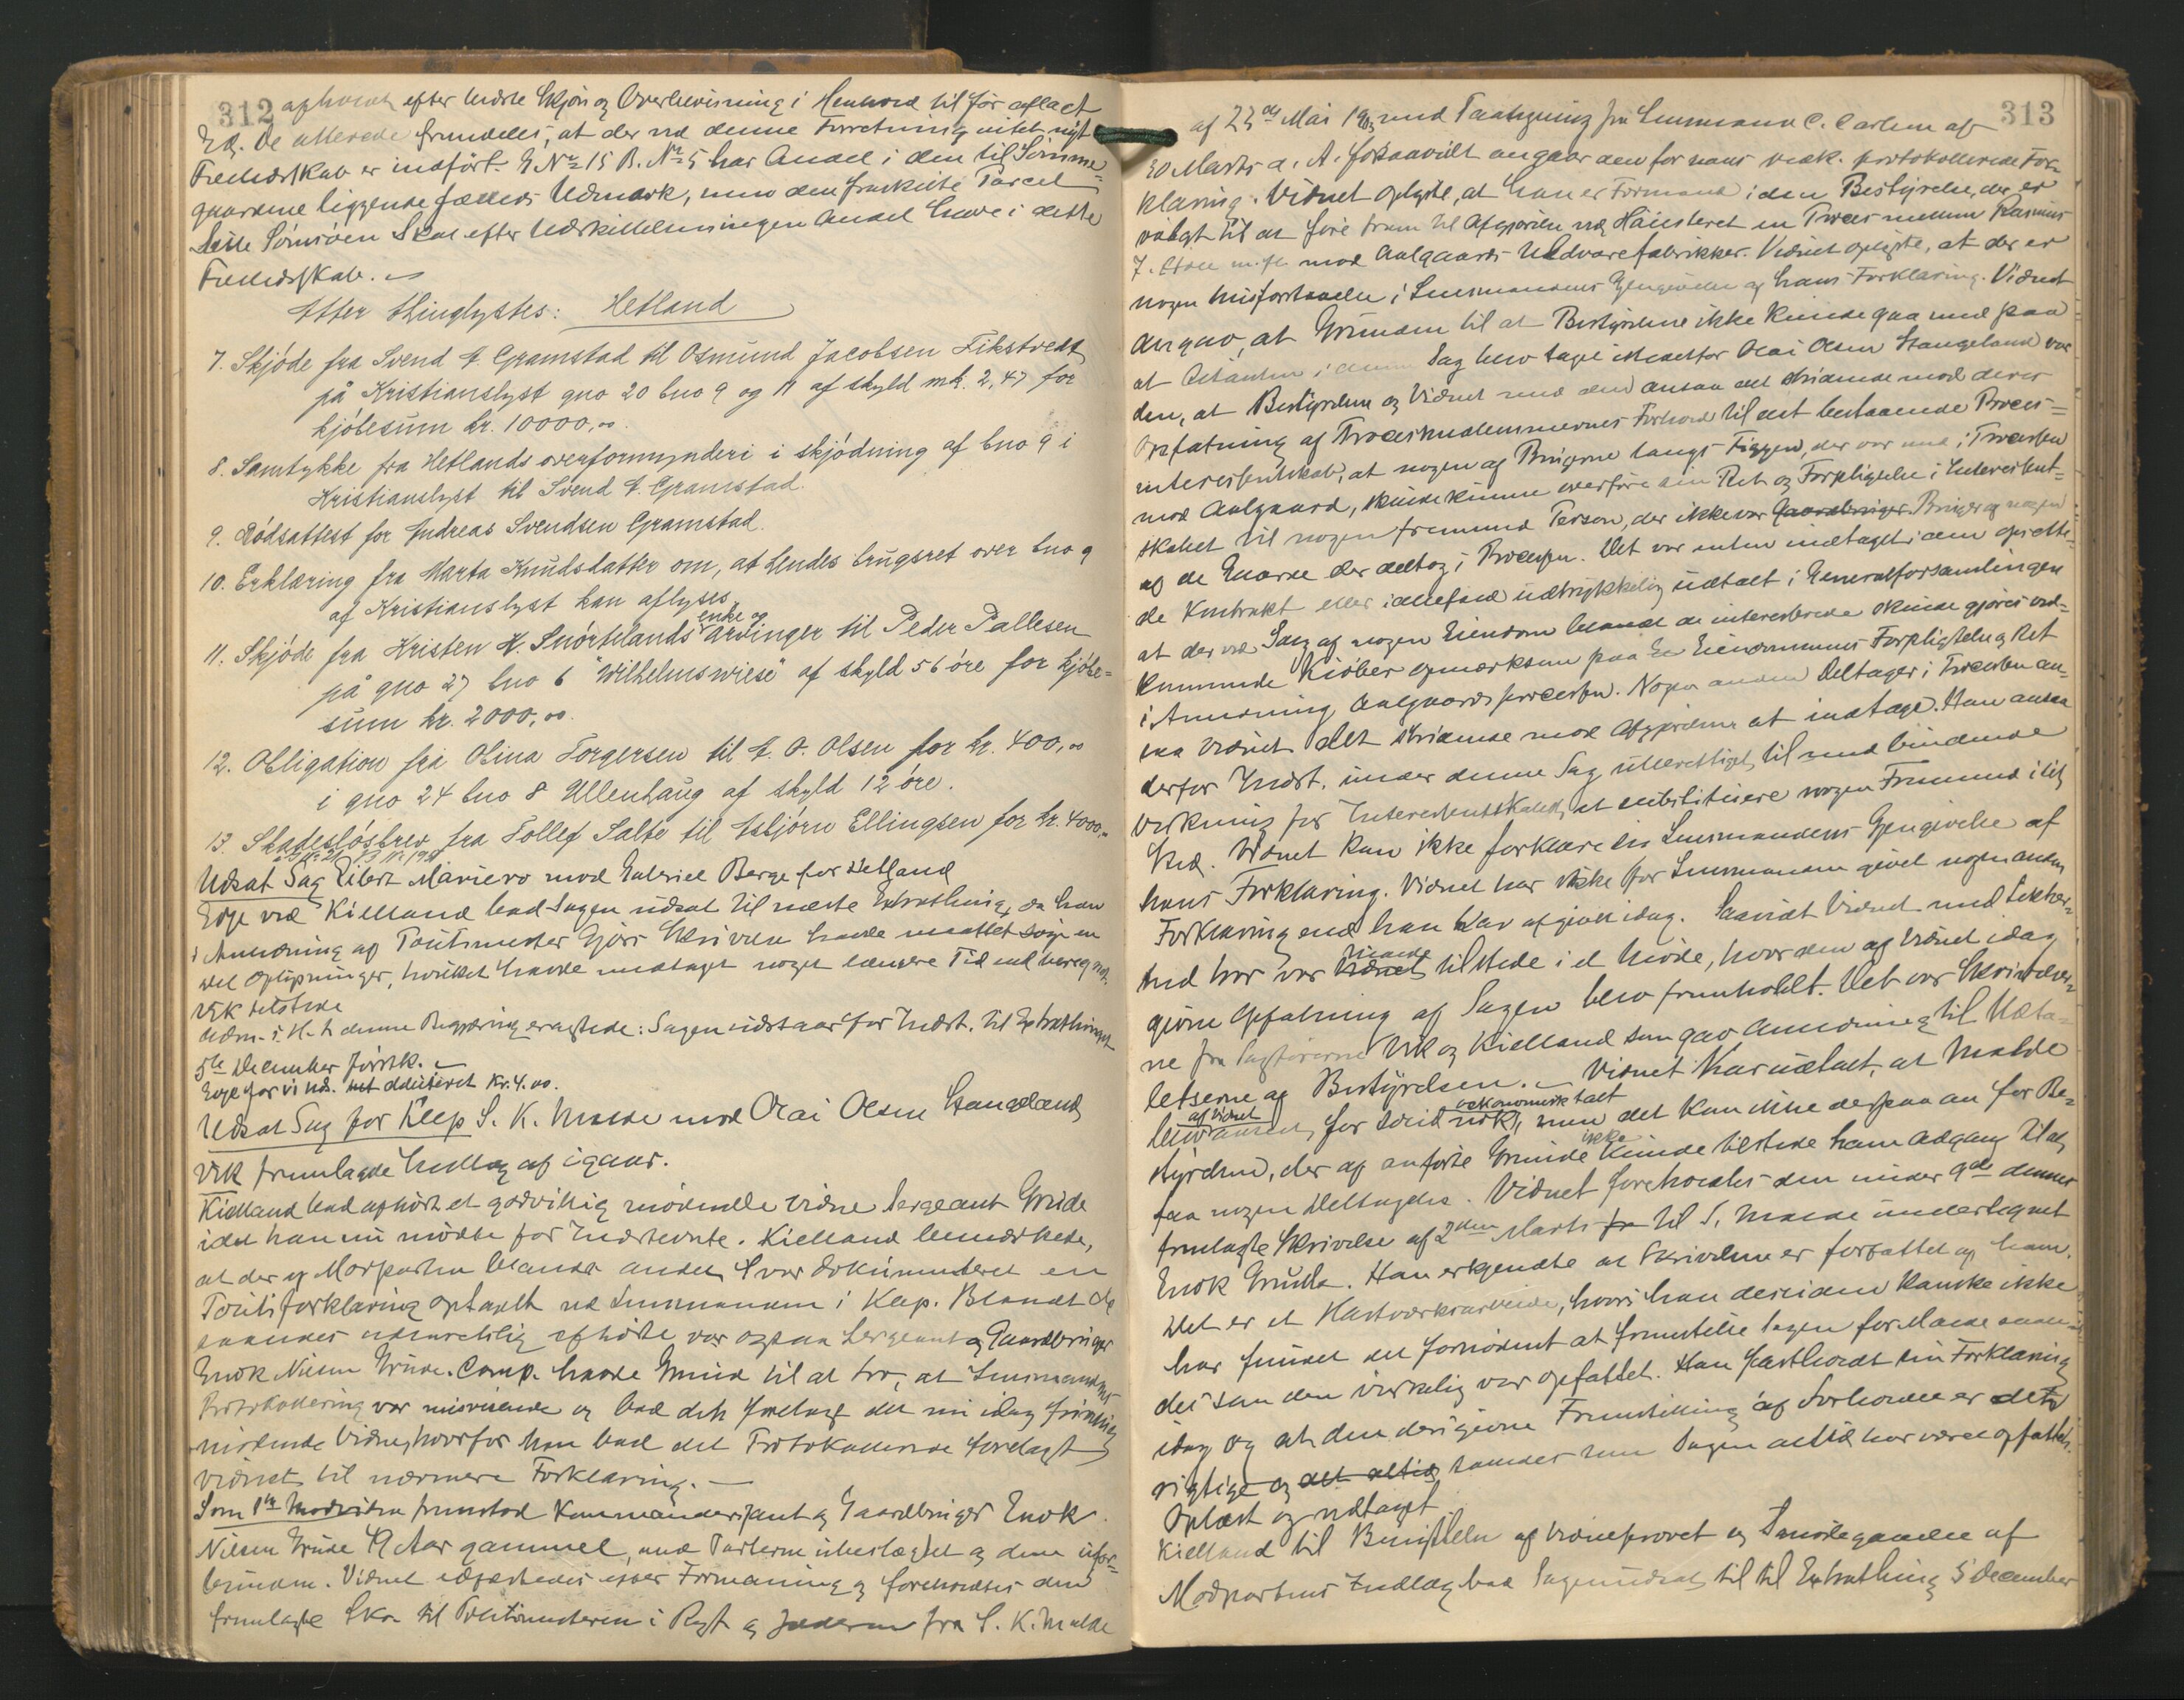 312
efter bedste Skjøn og Overbevisning i Henhold til før aflagt
Ed. De atterede fremdeles, at der ved denne Forretning intet nyt
Fællesskab er indført. G. Nr 15 B. Nr 5 har Andel i den til Sømme=
gaardene liggende fælleds Udmark, men den fraskilte Parcel
Lille Sømsøen skal efter Udskiftningen Andel have i dette
Fælledsskab.
Etter thinglystes: Hetland
7. Skjøde fra Svend A. Gramstad til Osmund Jacobsen Fikstvedt
på Kristianslyst gno 20 bno 9 og 11 af skyld mk. 2,47 for
kjøbesum kr. 10000,00.
8. Samtykke fra Hetlands overformynderi i skjødning af bno 9 i
Kristianslyst til Svend A. Gramstad.
9. Dødsattest for Andreas Svendsen Gramstad.
10. Erklæring fra Marta Knudsdatter om, at hendes brugsret over bno 9
af Kristianslyst kan aflyses.
11. Skjøde fra Kristen H. Snørtelands enke og arvinger til Peder Pallesen
på gno 27 bno 6 "Wilhelmswiese" af skyld 56 øre for kjøbe=
sum kr. 2000,00.
12. Obligation fra Olina Torgersen til A. O. Olsen for kr. 400,00
i gno 24 bno 8 Ullenhaug af skyld 12 øre.
13. Skadesløsbrev fra Tollef Salte til Asbjørn Ellingsen for kr. 4000,00
Udsat Sag Eilert Mariero mod Gabriel Berge for Hetland
Eege ved Kielland bad Sagen udsat til næste Extrathing, da han
i Anledning af Politimester Gjørs Skrivelse havde maattet søge en
del Oplysninger, hvilket havde medtaget noget længere Tid end beregnet.
Vik tilstede
Udm. i H. t. denne Begjæring eragtede: Sagen udstaar for Indst. til Extrathinget
5te December førstk.
Eege for vi Nd. debiteret Kr. 4.00.
Udsat Sag for Klep S. K. Malde mod Olai Olsen Stangeland
Vik fremlagde Indlæg af igaar.
Kielland bad afhørt et godvillig mødende Vidne Sergeant Grude
idet han nu mødte for Indstevnte. Kielland bemærkede,
at der af Modparten blandt andet var dokumenteret en
Politiforklaring optaget ved Lensmanden i Klep. Blandt de
saaledes udenretslig afhørte var ogsaa Sergeant og Gaardbruger
Enok Nilsen Grude. Comp. havde Grund til at tro, at Lensmandens
Protokollering var misvisende og bad dette forelagt det nu idag frivillig
mødende Vidne, hvorfor han bad det Protokollerede forelagt
Vidnet til nærmere Forklaring.
Som 1te Modvidne fremstod Kommandersjant og Gaardbruger Enok
Nilsen Grude Aar gammel, med Parterne ubeslægtet og dem ufor=
bunden. Vidnet edfæstedes efter Formaning og foreholdtes den
fremlagte Skr. til Politimesteren i Ryf. og Jæderen fra S. K. Malde
313
af 23de Mai 1903 med Paategning fra Lensmand C. Carlsen af
20 Marts d. A. forsaavidt angaar den for ham vedk. protokollerede For=
klaring. Vidnet oplyste, at han er Formand i den Bestyrelse, der er
valgt til at føre frem til Afgjørelse ved Høiesteret en Proces mellem Rasmus
7. m. fl. mod Aalgaards Uldvarefabrikker. Vidnet oplyste, at der er
nogen Misforstaaelse i Lensmandens Gjengivelse af hans Forklaring. Vidnet
angav, at Grunden til at Bestyrelsen ikke kunde gaa med paa
at Citanten i denne Sag blev taget istedetfor Olai Olsen Stangeland var
den, at Bestyrelsen og Vidnet med den ansaa det stridende mod deres
Opfatning af Procesmedlemmernes Forhold til det bestaaende Proces=
interessentskab, at nogen af Brugerne langs Figgen, der var med i Processen
mod Aalgaard, skulde kunne overføre sin Ret og Forpligtelse i Interessent=
skabet til nogen fremmed Person, der ikke var Gaardbruger Bruger af nogen
af de Gaarde der deltog i Processen. Det var enten indtaget i den oprette=
de Kontrakt eller i alfald udtrykkelig udtalt i Generalforsamlingen
at der ved Salg af nogen Eiendom blandt de interesserede skulde gjøres ved=
kommende Kjøber opmærksom paa Eiendommens Forpligtelse og Ret
i Anledning Aalgaardsprocessen. Nogen anden Deltager i Processen an=
saa Vidnet det stridende mod Afgjørelsen at indtage. Han ansaa
derfor Indst. under denne Sag uberettiget til med bindende
Virkning for Interessentskabet at substituere nogen Fremmed i sit
Sted. Vidnet kan ikke forklare sig Lensmandens Gjengivelse af
hans Forklaring. Vidnet har ikke for Lensmanden givet nogen anden
Forklaring end han har afgivet idag. Saavidt Vidnet
ved var Malde Vidnet tilstede i et Møde, hvor den af Vidnet idag
givne Opfatning af Sagen blev fremholdt. Det var
ne fra Sagførerne Vik og Kielland som gav Anledning til Udta=
lelserne af Bestyrelsen. Vidnet har udtalt, at Malde
blev af Vidnet anseet for solid nok, økonomisk talt men det kan ikke derpaa an for Be=
styrelsen, der af anførte Grunde ikke kunde tilstede ham Adgang til at
faa nogen Deltagelse. Vidnet foreholdtes den under 9de dennes
fremlagte Skrivelse af 2den Marts fra til S. Malde undertegnet
Enok Grude. Han erkjendte at Skrivelsen er forfattet af ham.
Det er et Hastværksarbeide, hvori han desuden kanske ikke
har fundet det fornødent at fremstille Sagen for Malde saale=
des som den virkelig var opfattet. Han fastholdt sin Forklaring
idag og at den deri givne Fremstilling af Forholdet er det
rigtige og det altid saaledes som Sagen altid har været opfattet.
Oplæst og vedtaget.
Kielland til Benyttelse af Vidneprovet og Imødegaaelse af
Modpartens Indlæg bad Sagen udsat til til Extrathing 5 December